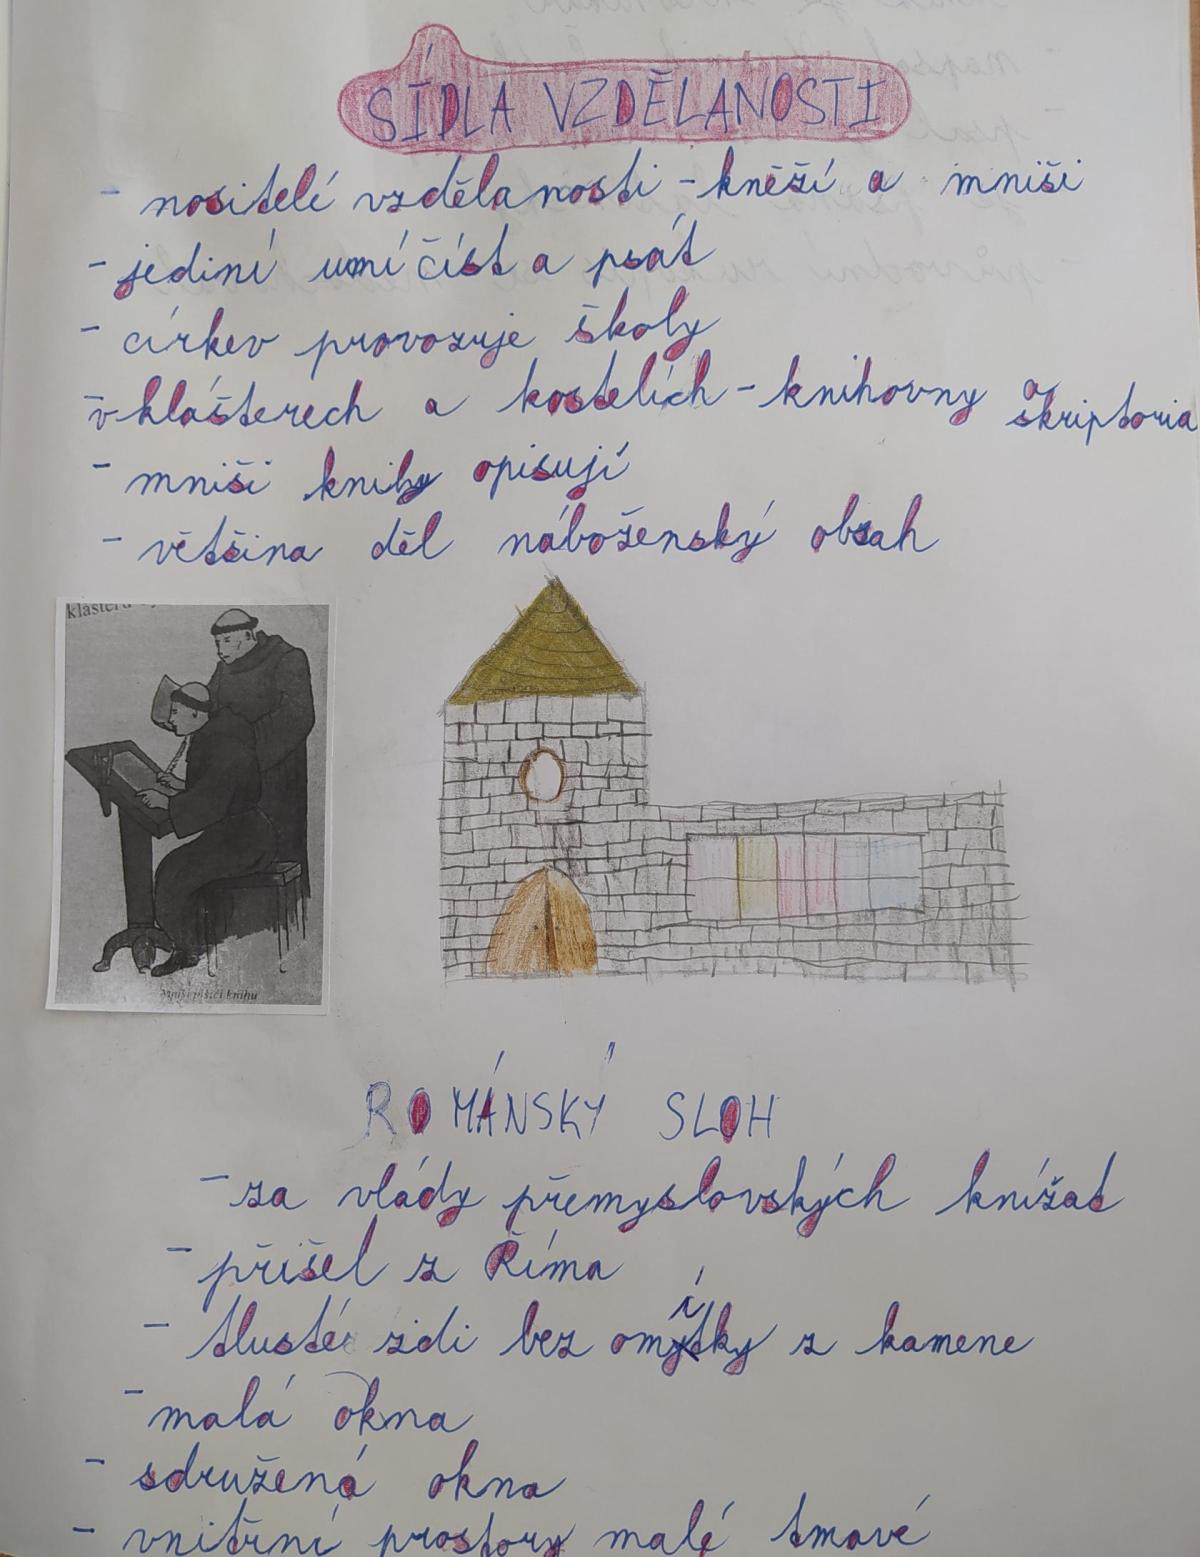 SÍDLA VZDĚLANOSTI
- nositelé vzdělanosti - kněží a mniši
- jediní umí číst a psát
- církev provozuje školy
- v klášterech a kostelích - knihovny a skriptoria
- mniši knihy opisují
- většina děl náboženský obsah
Mniši píšící knihu
ROMÁNSKÝ SLOH
- za vlády přemyslovských knížat
- přišel z Říma
- tlusté zdi bez omítky z kamene
- malá okna
- sdružená okna
- vnitřní prostory malé tmavé